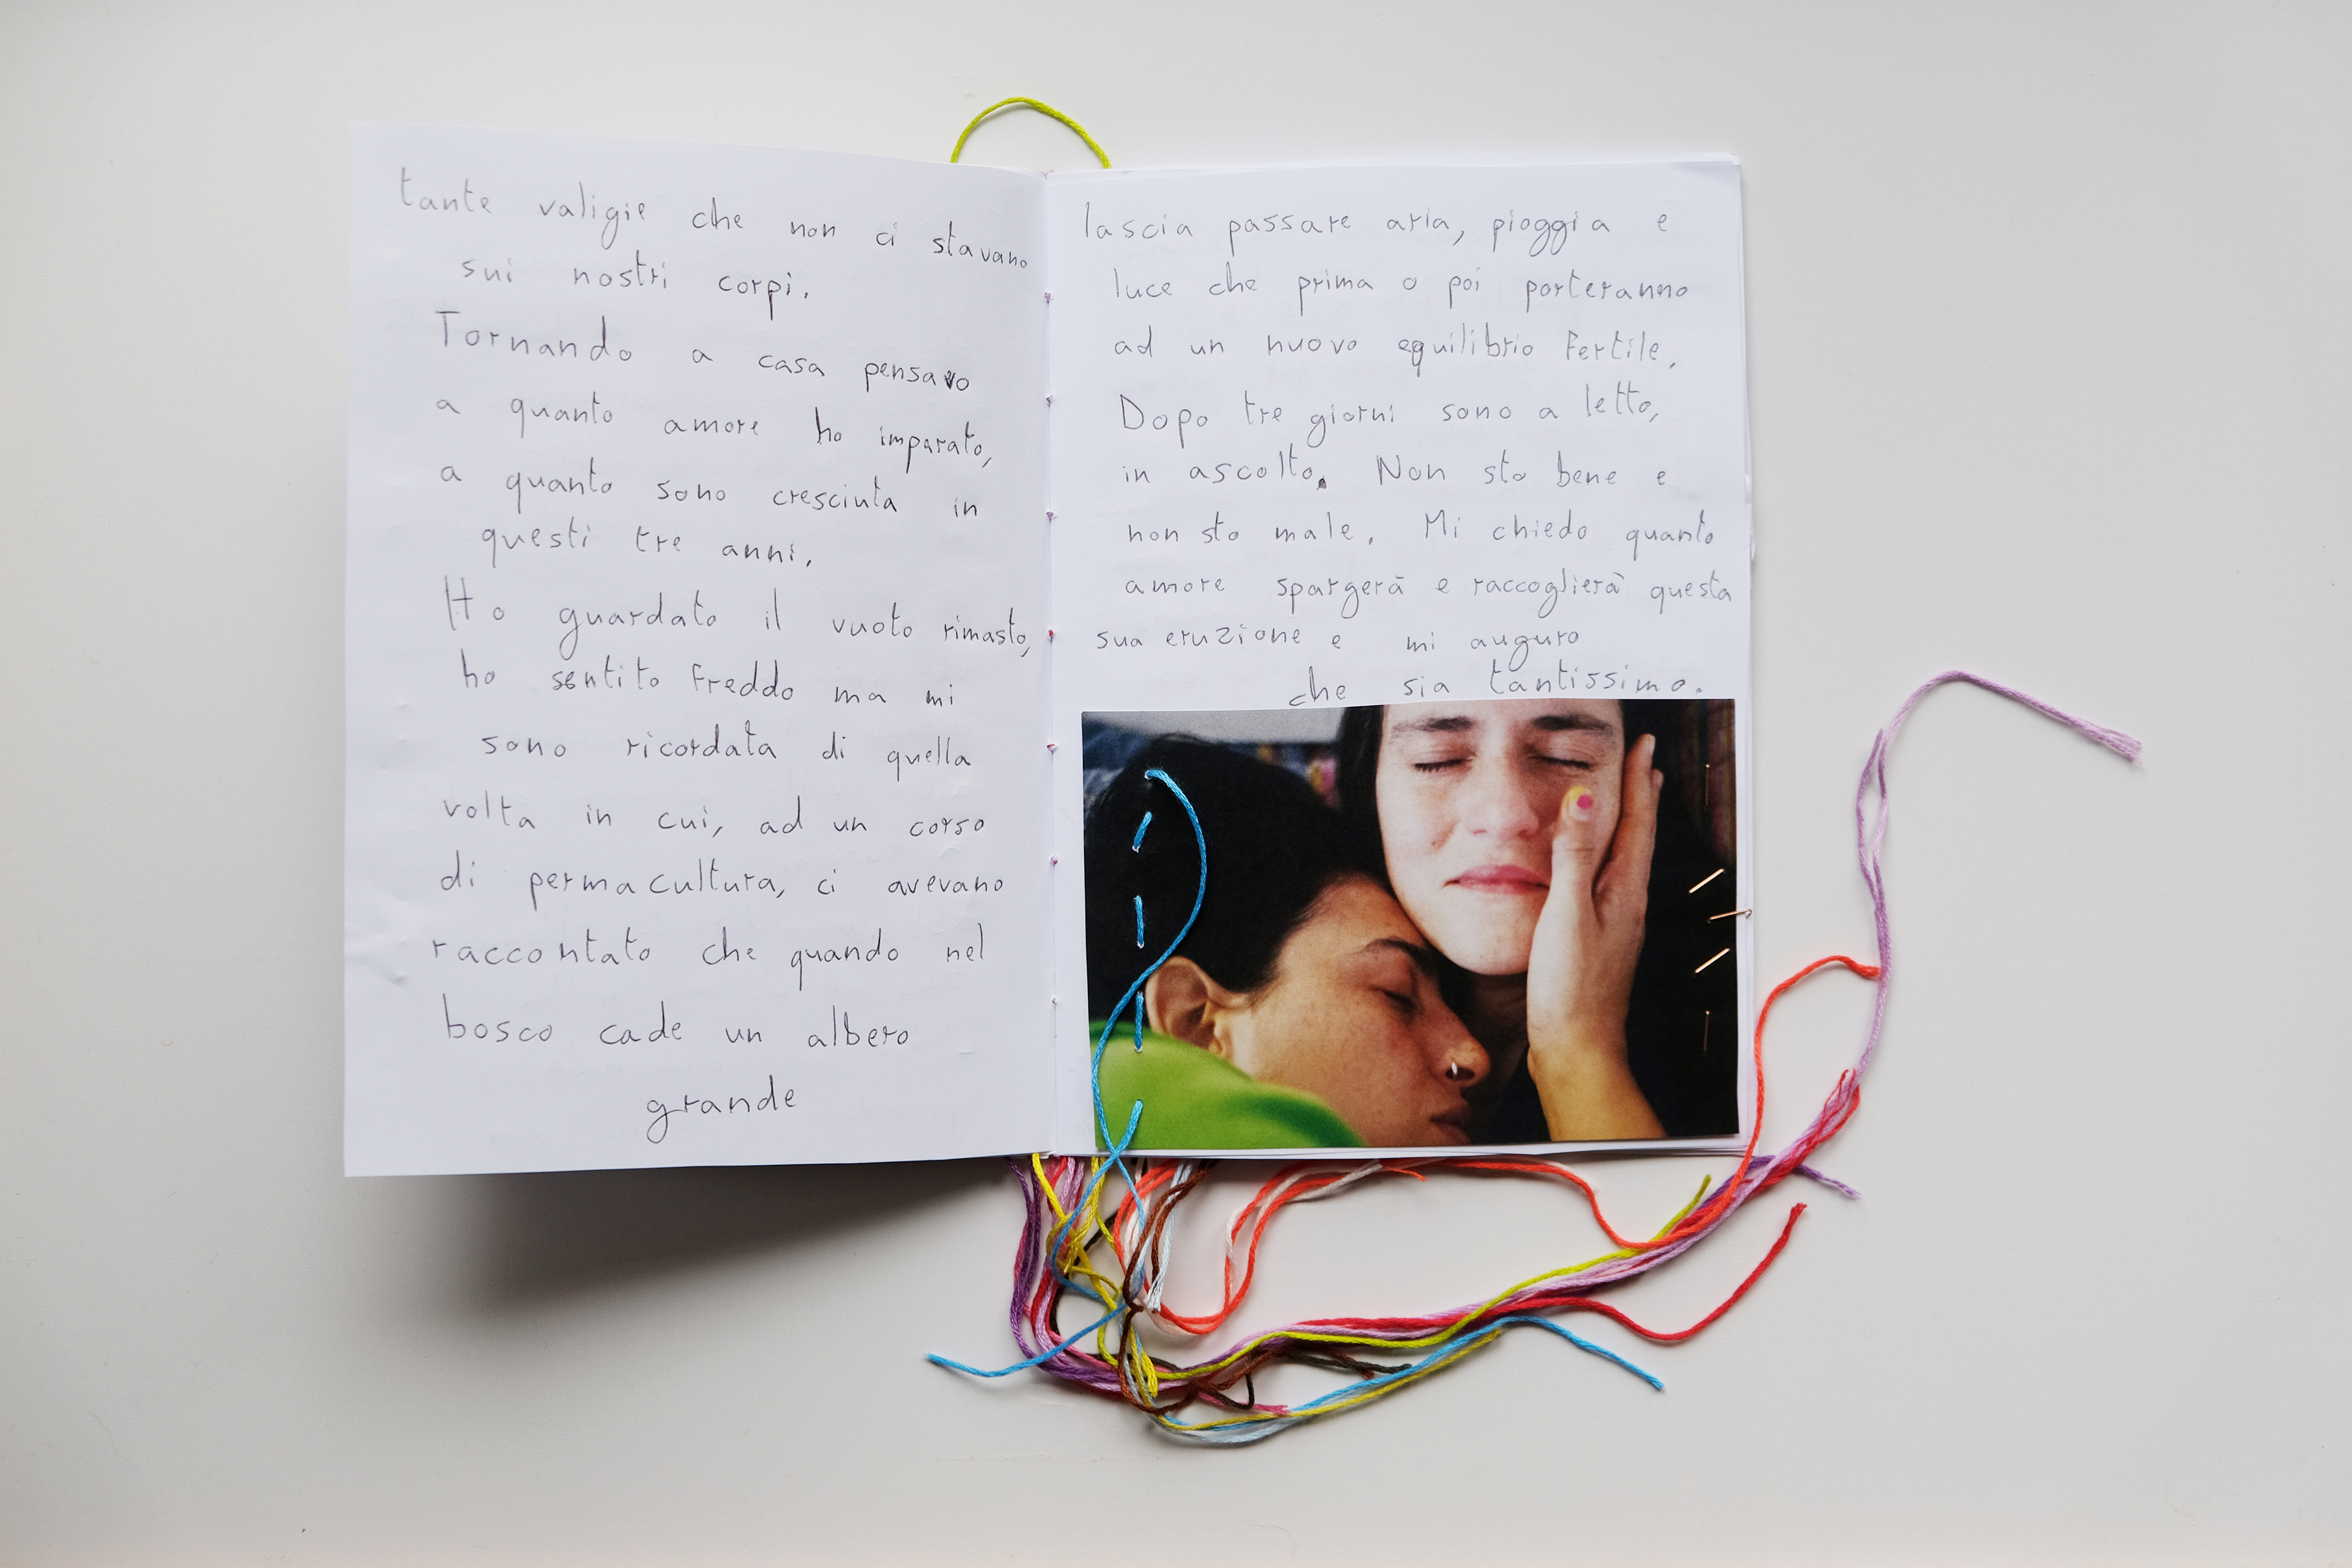 tante valigie che non ci stavano
sui nostri corpi.
Tornando a casa pensavo
a quanto amore ho imparato,
a quanto sono cresciuta in
questi tre anni.
Ho guardato il vuoto rimasto,
ho sentito freddo ma mi
sono ricordata di quella
volta in cui, ad un corso
di permacultura, ci avevano
raccontato che quando nel
bosco cade un albero
grande
lascia passare aria, pioggia e
luce che prima o poi porteranno
ad un nuovo equilibrio fertile.
Dopo tre giorni sono a letto,
in ascolto. Non sto bene e
non sto male. Mi chiedo quanto
amore spargerà e raccoglierà questa
sua eruzione e mi auguro
che sia tantissimo.